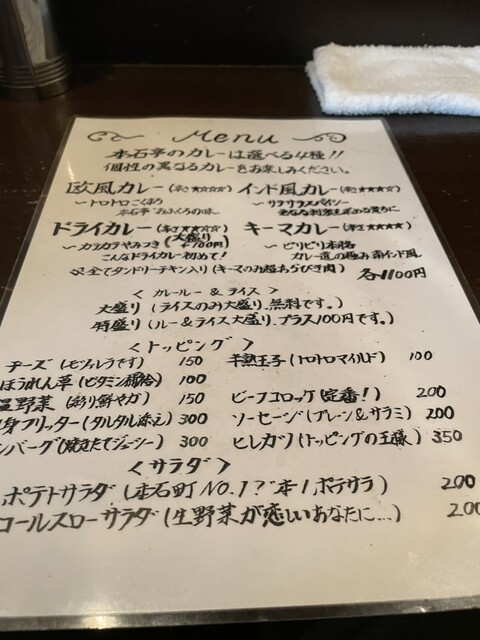 Menu
本石亭のカレーは選べる4種!!
個性の異なるカレーをお楽しみください。
欧風カレー(辛さ★☆☆☆☆) インド風カレー(辛さ★★★★☆)
〜トロトロこくまろ 〜サラサラスパイシー
本石亭 おふくろの味 更なる刺激を求める貴方に
ドライカレー(辛さ★★☆☆☆) キーマカレー(辛さ★★★★☆)
(大盛り+100円)
〜カラカラやみつき 〜ピリピリ本格
こんなドライカレー初めて! カレー道の極み 南インド風
全てタンドリーチキン入り(キーマのみ超あらびき肉) 各1100円
<カレールー&ライス>
大盛り(ライスのみ大盛り、無料です。)
特盛り(ルー&ライス大盛り、プラス100円です。)
<トッピング>
チーズ(モツァレラです) 150 半熟玉子(トロトロマイルド) 100
ほうれん草(ビタミン補給) 100
温野菜(彩り鮮やか) 150 ビーフコロッケ(定番!) 200
身フリッター(タルタル添え) 300 ソーセージ(プレーン&サラミ) 200
ンバーグ(焼きたてジューシー) 300 ヒレカツ(トッピングの王様) 350
<サラダ>
ポテトサラダ(本石町NO.1?"本1"ポテサラ) 200
コールスローサラダ(生野菜が恋しいあなたに…) 200